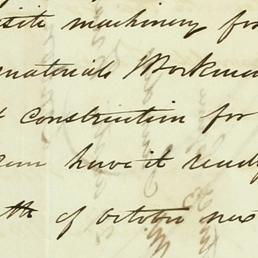 machinery for
materials Workmen
construction for
have it ready
th of October nex